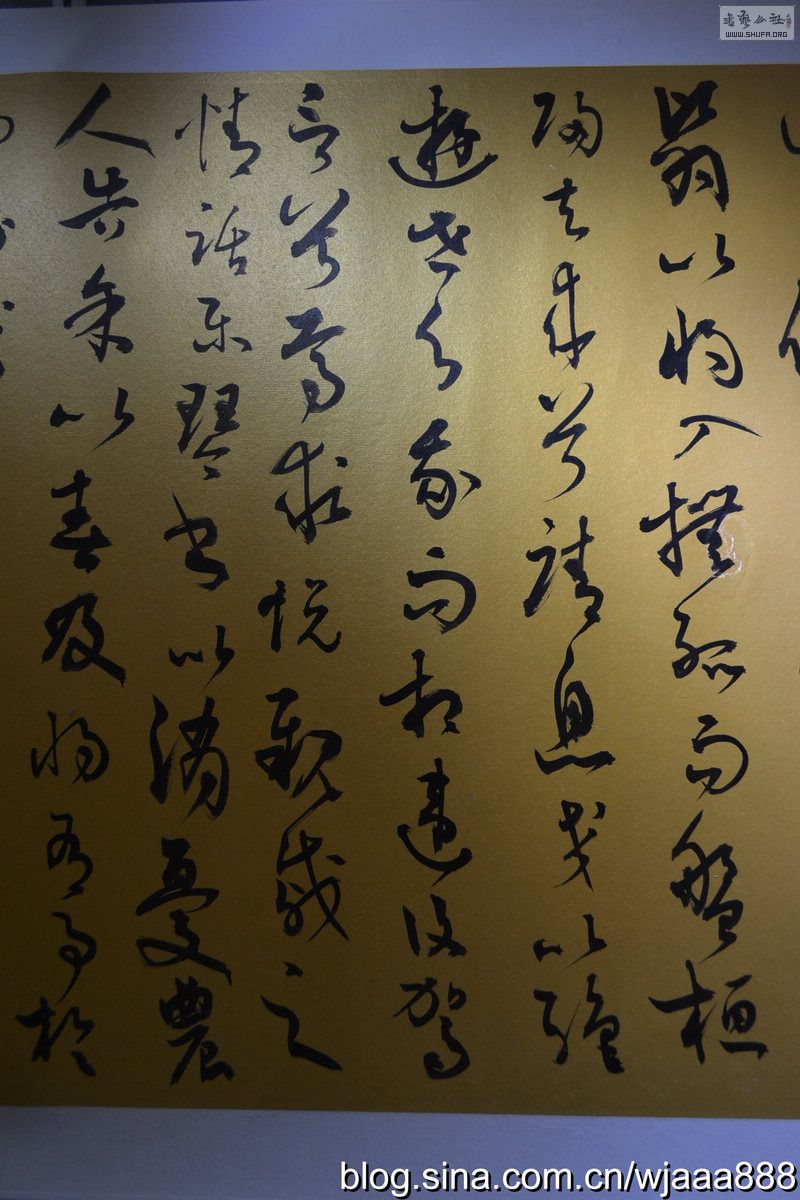 翳以将入撫孤而盤桓
歸去来兮請息交以絶
遊世与我而相違復駕
言兮焉求悦親戚之
情話樂琴書以消憂農
人告余以春及将有事於
書藝公社
WWW.SHUFA.ORG
blog.sina.com.cn/wjaaa888